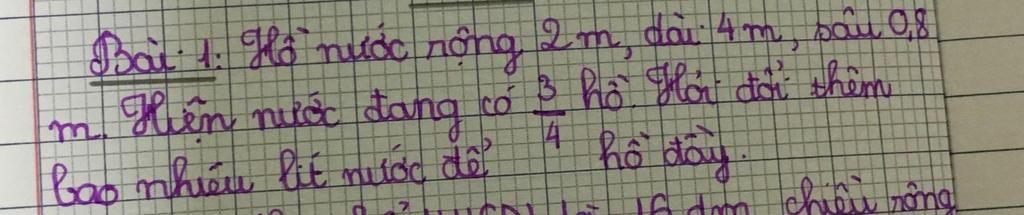 Bài 1: Hồ nước rộng 2m, dài 4m, sâu 0,8
m. Hiện nước đang có 3/4 hồ. Hỏi đổi thêm
bao nhiêu lít nước để hồ đầy.
chiều rộng